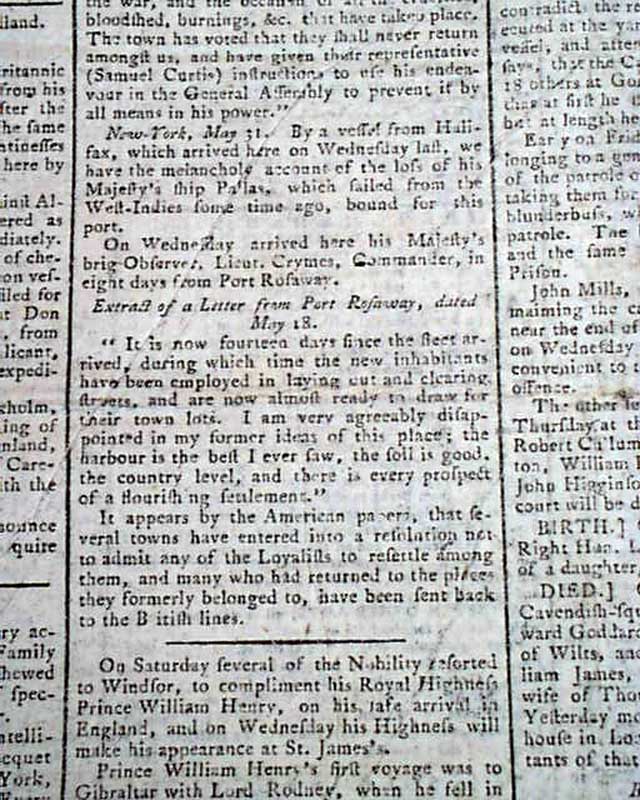 illand.
ritannic
from his
fter the
he same
ntinesses
here by
inst Al-
ered as
diately.
of che-
on vef-
iled for
at Don
, from
licant,
expedi-
sholm,
ing of
nland,
Care-
ith the
nounce
quite
ry ac-
Family
shewed
spec-
r.
ntelli-
acquet
York,
bloodſhed, burnings, &c. that have taken place.
The town has voted that they ſhall never return
amongſt us, and have given their repreſentative
(Samuel Curtis) inſtructions to uſe his endea-
vour in the General Aſſembly to prevent it by
all means in his power."
New-York, May 31. By a veſſel from Hali-
fax, which arrived here on Wedneſday laſt, we
have the melancholy account of the loſs of his
Majeſty's ſhip Pallas, which ſailed from the
Weſt-Indies ſome time ago, bound for this
port.
On Wedneſday arrived here his Majeſty's
brig Obſerver, Lieut. Crymes, Commander, in
eight days from Port Roſaway.
Extract of a Letter from Port Roſaway, dated
May 18.
" It is now fourteen days ſince the fleet ar-
rived, during which time the new inhabitants
have been employed in laying out and clearing
ſtreets, and are now almoſt ready to draw for
their town lots. I am very agreeably diſap-
pointed in my former ideas of this place; the
harbour is the beſt I ever ſaw, the ſoil is good,
the country level, and there is every proſpect
of a flouriſhing ſettlement."
It appears by the American papers, that ſe-
veral towns have entered into a reſolution not
to admit any of the Loyaliſts to reſettle among
them, and many who had returned to the places
they formerly belonged to, have been ſent back
to the B itiſh lines.
On Saturday ſeveral of the Nobility reſorted
to Windſor, to compliment his Royal Highneſs
Prince William Henry, on his ſafe arrival in
England, and on Wedneſday his Highneſs will
make his appearance at St. James's.
Prince William Henry's firſt voyage was to
Gibraltar with Lord Rodney, when he fell in
contradict the
ecuted at the
veſſel, and after
ſays, that the
18 others at
that at firſt he
but at length he
longing to a
of the patrole
taking them for
blunderbuſs,
patrole. The
and the ſame
Priſon.
John Mills,
maiming the
near the end of
on Wedneſday
convenient to
offence.
The other
Thurſday at
Robert
ton, William
John Higginſo
court will be
BIRTH.]
Right Hon. L
of a daughter
DIED.]
Cavendiſh-ſq
ward Goddar
of Wilts, and
liam James,
wife of Tho
Yeſterday m
houſe in Lo
tants of that